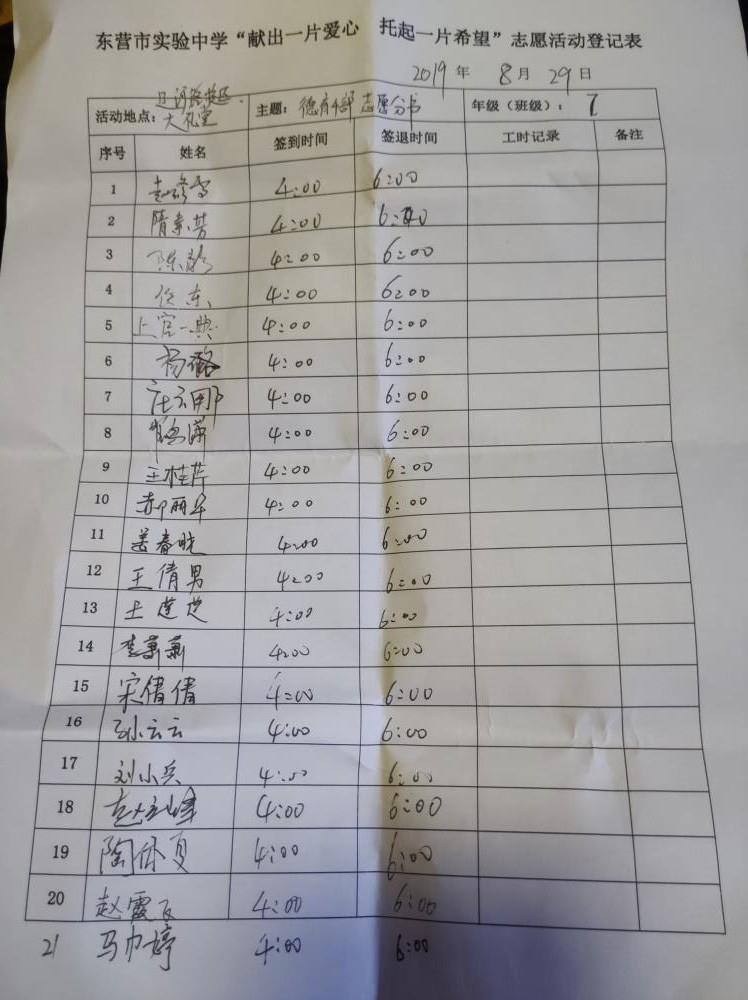 东营市实验中学“献出一片爱心 托起一片希望”志愿活动登记表
2019 年 8 月 29 日
活动地点：大礼堂 主题：德育 志愿分书 年级（班级）：7
序号 姓名 签到时间 签退时间 工时记录 备注
1 4:00 6:00
2 隋素芳 4:00 6:00
3 陈 4:00 6:00
4 任东 4:00 6:00
5 上官一典 4:00 6:00
6 杨璐 4:00 6:00
7 杜云那 4:00 6:00
8 4:00 6:00
9 王桂芹 4:00 6:00
10 郝丽华 4:00 6:00
11 姜春晓 4:00 6:00
12 王倩男 4:00 6:00
13 4:00 6:00
14 李萧萧 4:00 6:00
15 宋倩倩 4:00 6:00
16 孙云云 4:00 6:00
17 刘小兵 4:00 6:00
18 4:00 6:00
19 陶 夏 4:00 6:00
20 赵霞飞 4:00 6:00
21 马巾婷 4:00 6:00